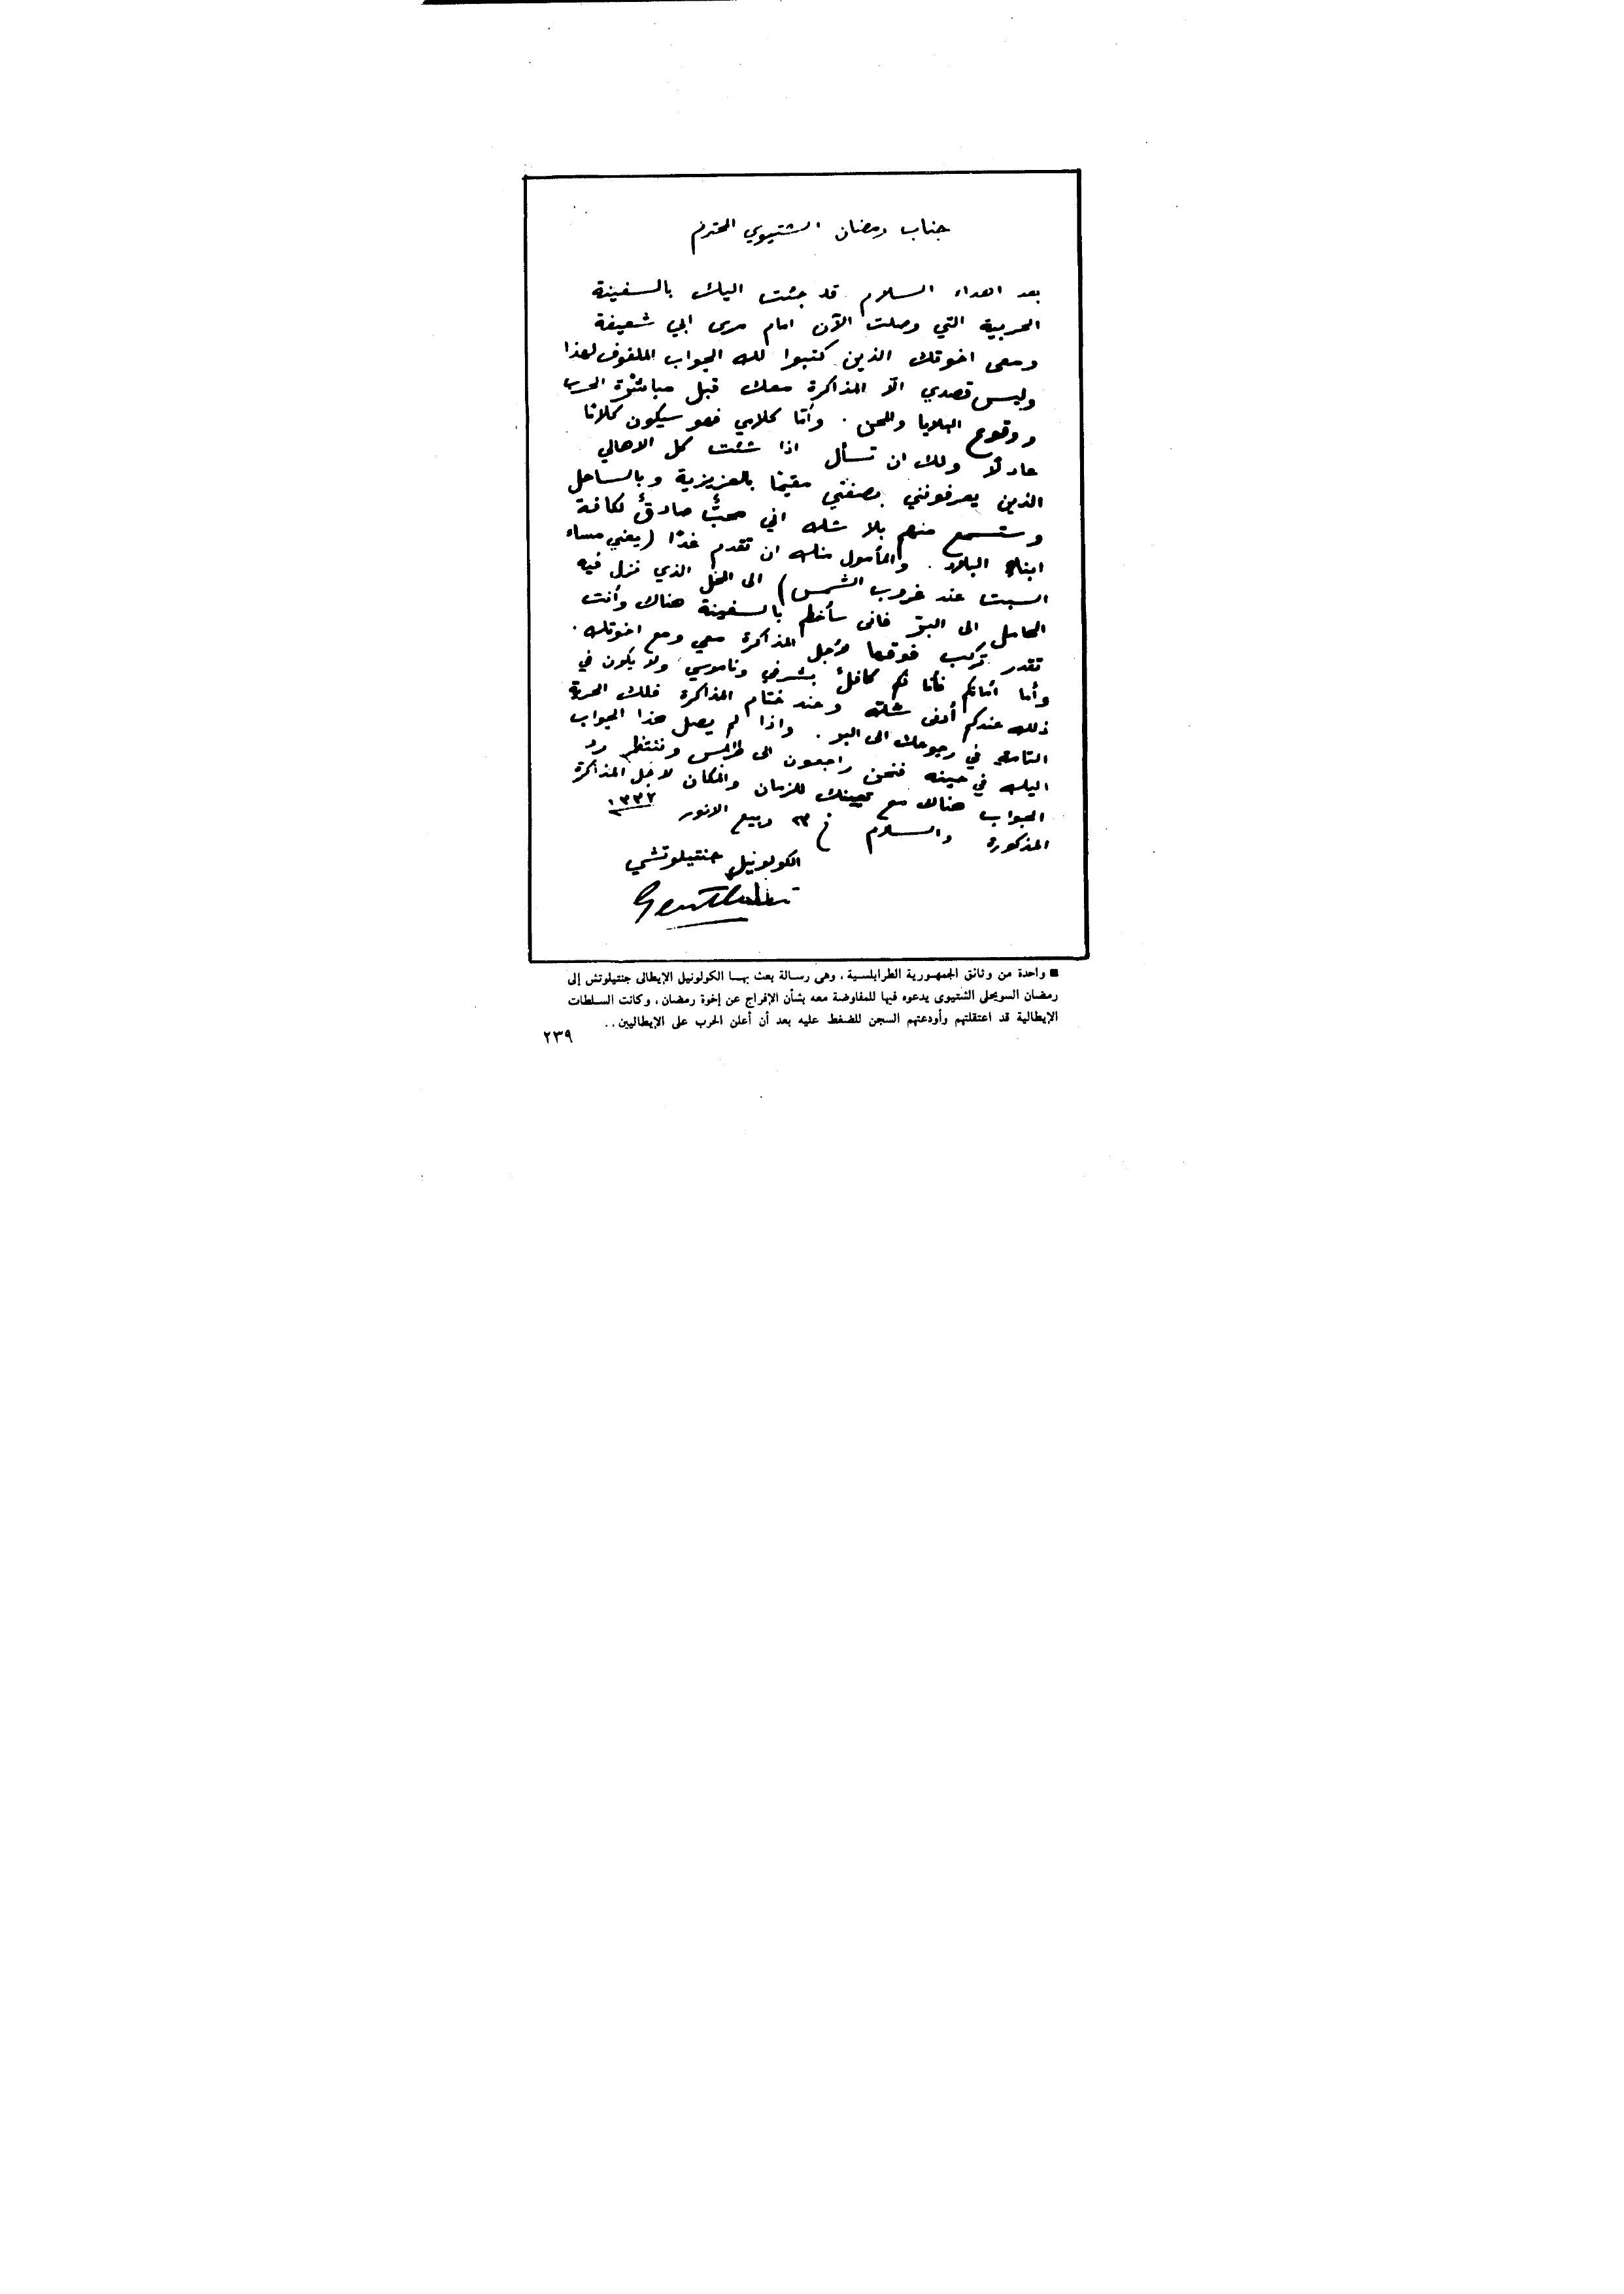 جناب رمضان الشتيوي المحترم
بعد اهداء السلام قد جئت اليك بالسفينة
الحربية التي وصلت الآن امام مرسى ابي شعيفة
ومعى اخوتك الذين كتبوا لك الجواب الملفوف لهذا
وليس قصدي الّا المذاكرة معك قبل مباشرة الحرب
ووقوع البلايا والمحن . وأمّا كلامي فهو سيكون كلامًا
عادلًا ولك ان تسأل اذا شئت كل الاهالي
الذين يعرفونني بصفتي مقيمًا بالعزيزية وبالساحل
وستسمع منهم بلا شك اني محبٌّ صادقٌ لكافة
ابناء البلاد . والمأمول منك ان تقدم غدًا (يعني مساء
السبت عند غروب الشمس) الى المحل الذي نزل فيه
الحامل الى البرّ فانى سأخطم بالسفينة هناك وأنت
تقدر تركب فوقها لأجل المذاكرة معي ومع اخوتك .
وأما أمانكم فأنا لكم كافلٌ بشرفي وناموسي ولا يكون في
ذلك عندكم أدنى شك وعند ختام المذاكرة فلك الحرية
التامة في رجوعك الى البر . واذا لم يصل هذا الجواب
اليك في حينه فنحن راجعون الى طرابلس وننتظر رد
الجواب هناك مع تعيينك للزمان والمكان لاجل المذاكرة
المذكورة والسلام في ٢٣ ربيع الانور ١٣٣٢
الكولونيل جنتيلوتشي
■ واحدة من وثائق الجمهورية الطرابلسية ، وهى رسالة بعث بها الكولونيل الإيطالى جنتيلوتش إلى
رمضان السويحلى الشتيوى يدعوه فيها للمفاوضة معه بشأن الإفراج عن إخوة رمضان ، وكانت السلطات
الإيطالية قد اعتقلتهم وأودعتهم السجن للضغط عليه بعد أن أعلن الحرب على الإيطاليين . .
٢٣٩